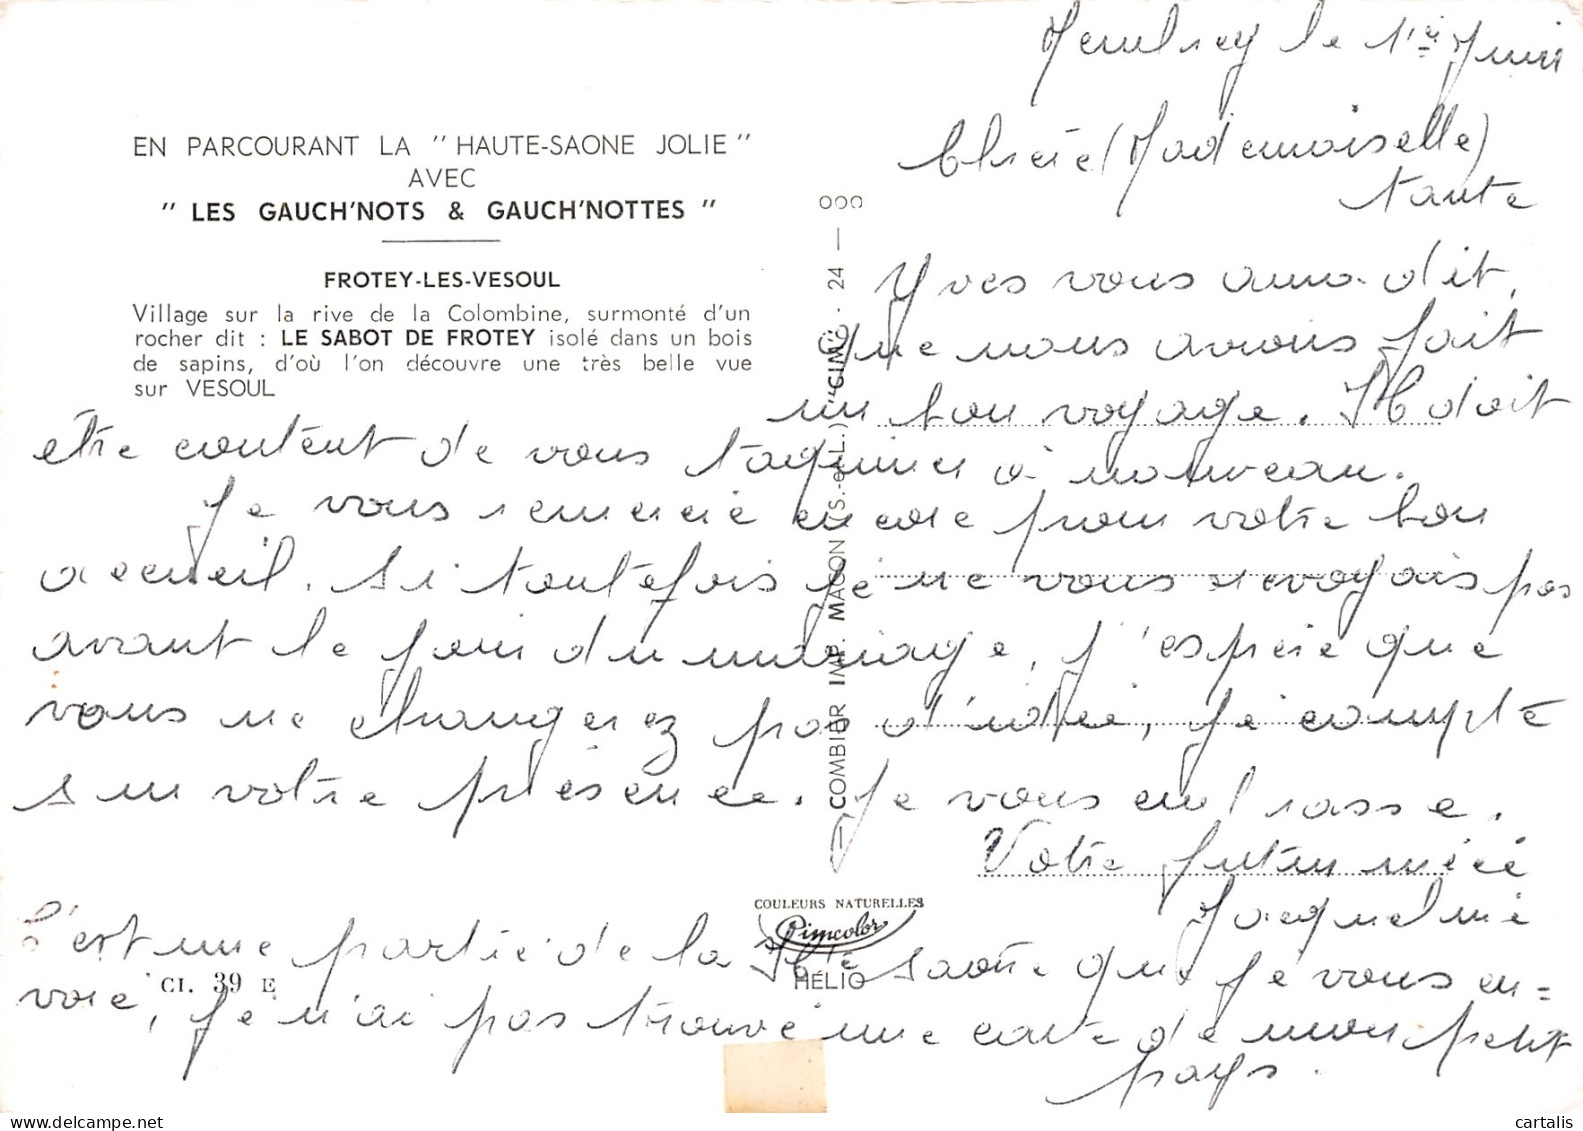 le 1er Juin
EN PARCOURANT LA " HAUTE-SAONE JOLIE "
AVEC
" LES GAUCH'NOTS & GAUCH'NOTTES "
FROTEY-LES-VESOUL
Village sur la rive de la Colombine, surmonté d'un
rocher dit : LE SABOT DE FROTEY isolé dans un bois
de sapins, d'où l'on découvre une très belle vue
sur VESOUL
Chère (Mademoiselle)
tante
Yves vous aura dit,
que nous avons fait
un bon voyage. Il doit
être content de vous taquiner à nouveau.
Je vous remercie encore pour votre bon
accueil. Si toutefois je ne vous revoyais pas
avant le jour du mariage, j'espère que
vous ne changerez pas d'idée, je compte
sur votre présence. Je vous embrasse.
Votre future nièce
Jacqueline
C'est une partie de la Hte Saône que je vous en=
voie, je n'ai pas trouvé une carte de mon petit
pays.
COMBIER IMP. MACON (S.-et-L.) "CIM" - 24 — 000
COULEURS NATURELLES
Cimcolor
HÉLIO
CI. 39 E
cartalis